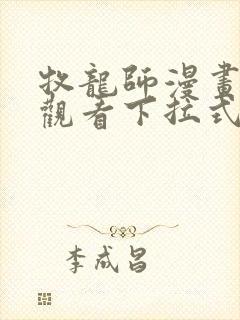 牧龍師漫畫
觀看下拉式
李成昌